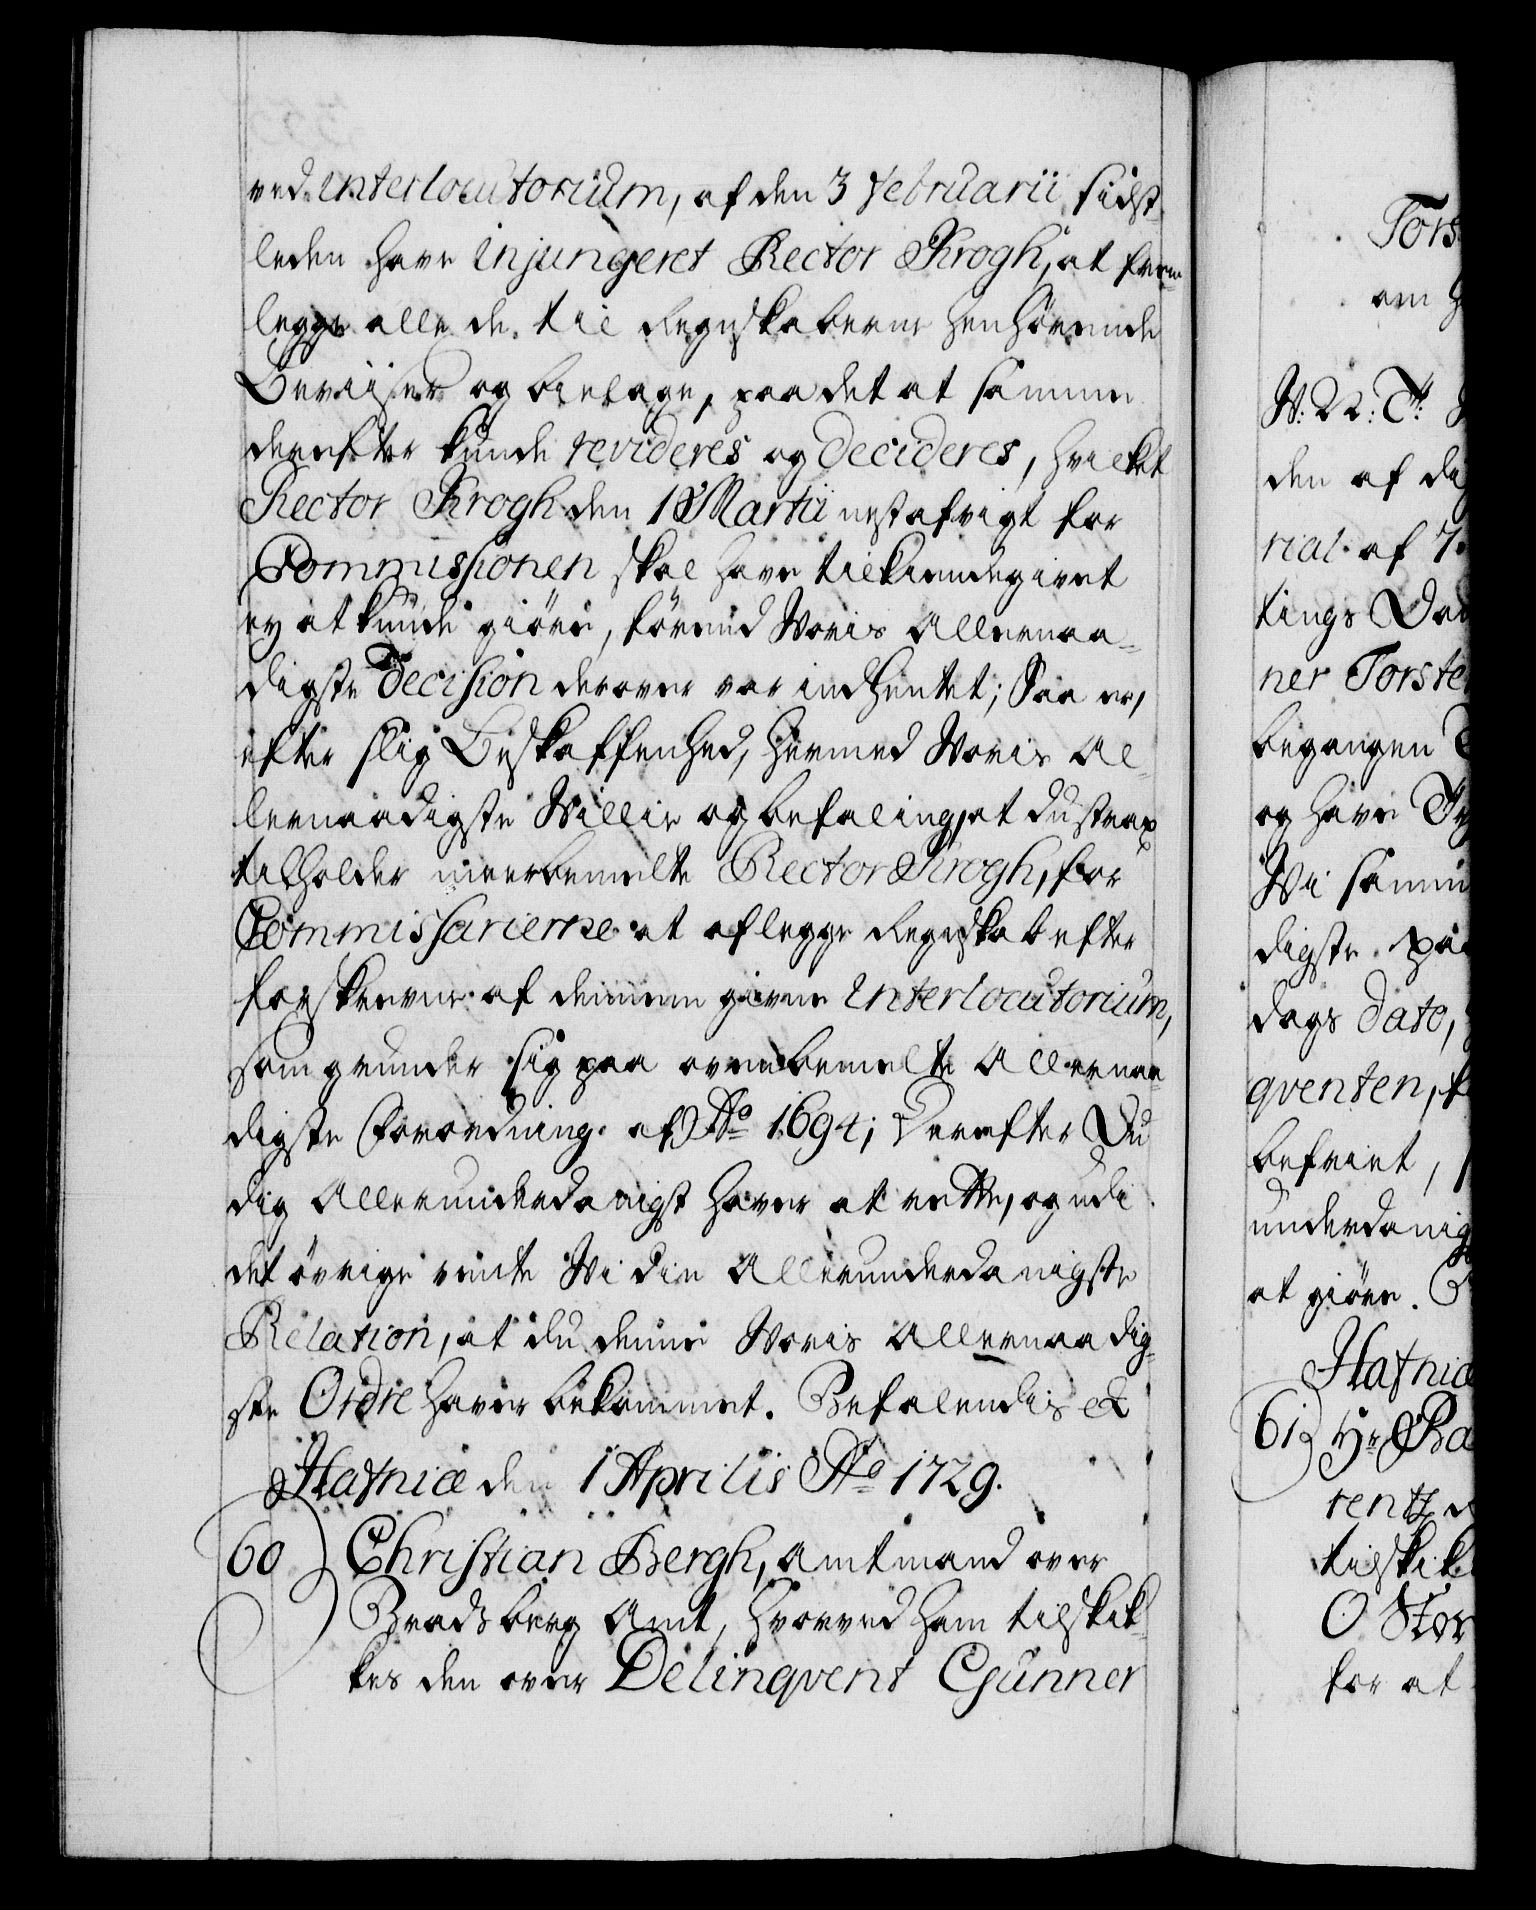 ved Interlocutorium, af den 3 Februarii sidst
leden have injungeret Rector Krogh, at frem-
legge alle de til Regnskaberne henhörende
Beviiser og bielage, paa det at samme
derefter kunde revideres og decideres, hvilket
Rector Krogh den 18 Martii nestafvigt for
Commissionen skal have tilkiendegivet
ey at kunde giöre, förend Voris Allernaa-
digste Decision derover var indhentet; Saa er,
efter slig Beskaffenhed, hermed Voris Al-
lernaadigste Villie og befaling, at du strax
tilholder meerbemelte Rector Krogh, for
Commissarierne at aflegge Regnskab efter
forskrevne af dennem givne Interlocutorium,
som grunder sig paa ovenbemelte Allernaa-
digste Forordning af Ao 1694; Derefter Du
dig Allerunderdanigst haver at rette, og udi
det övrige vente Vi din Allerunderdanigste
Relation, at du denne Voris Allernaadig-
ste Ordre haver bekommet. Befalendis &
Hafniæ den 1 Aprilis Ao 1729.
60) Christian Bergh, Amtmand over
Bradsberg Amt, hvorved ham tilskik-
kes den over Delinqvent Gunner
Tors
om
W: Vi: Fr:
den af
rial af 7.
tings
ner Torste
begangen
og have
Vi samm
digste paa
dags dato,
qventen,
befriet,
underdanig
at giöre.
Hafniæ
61) Hr Ba
rentz
tilskik
O Stor
for at